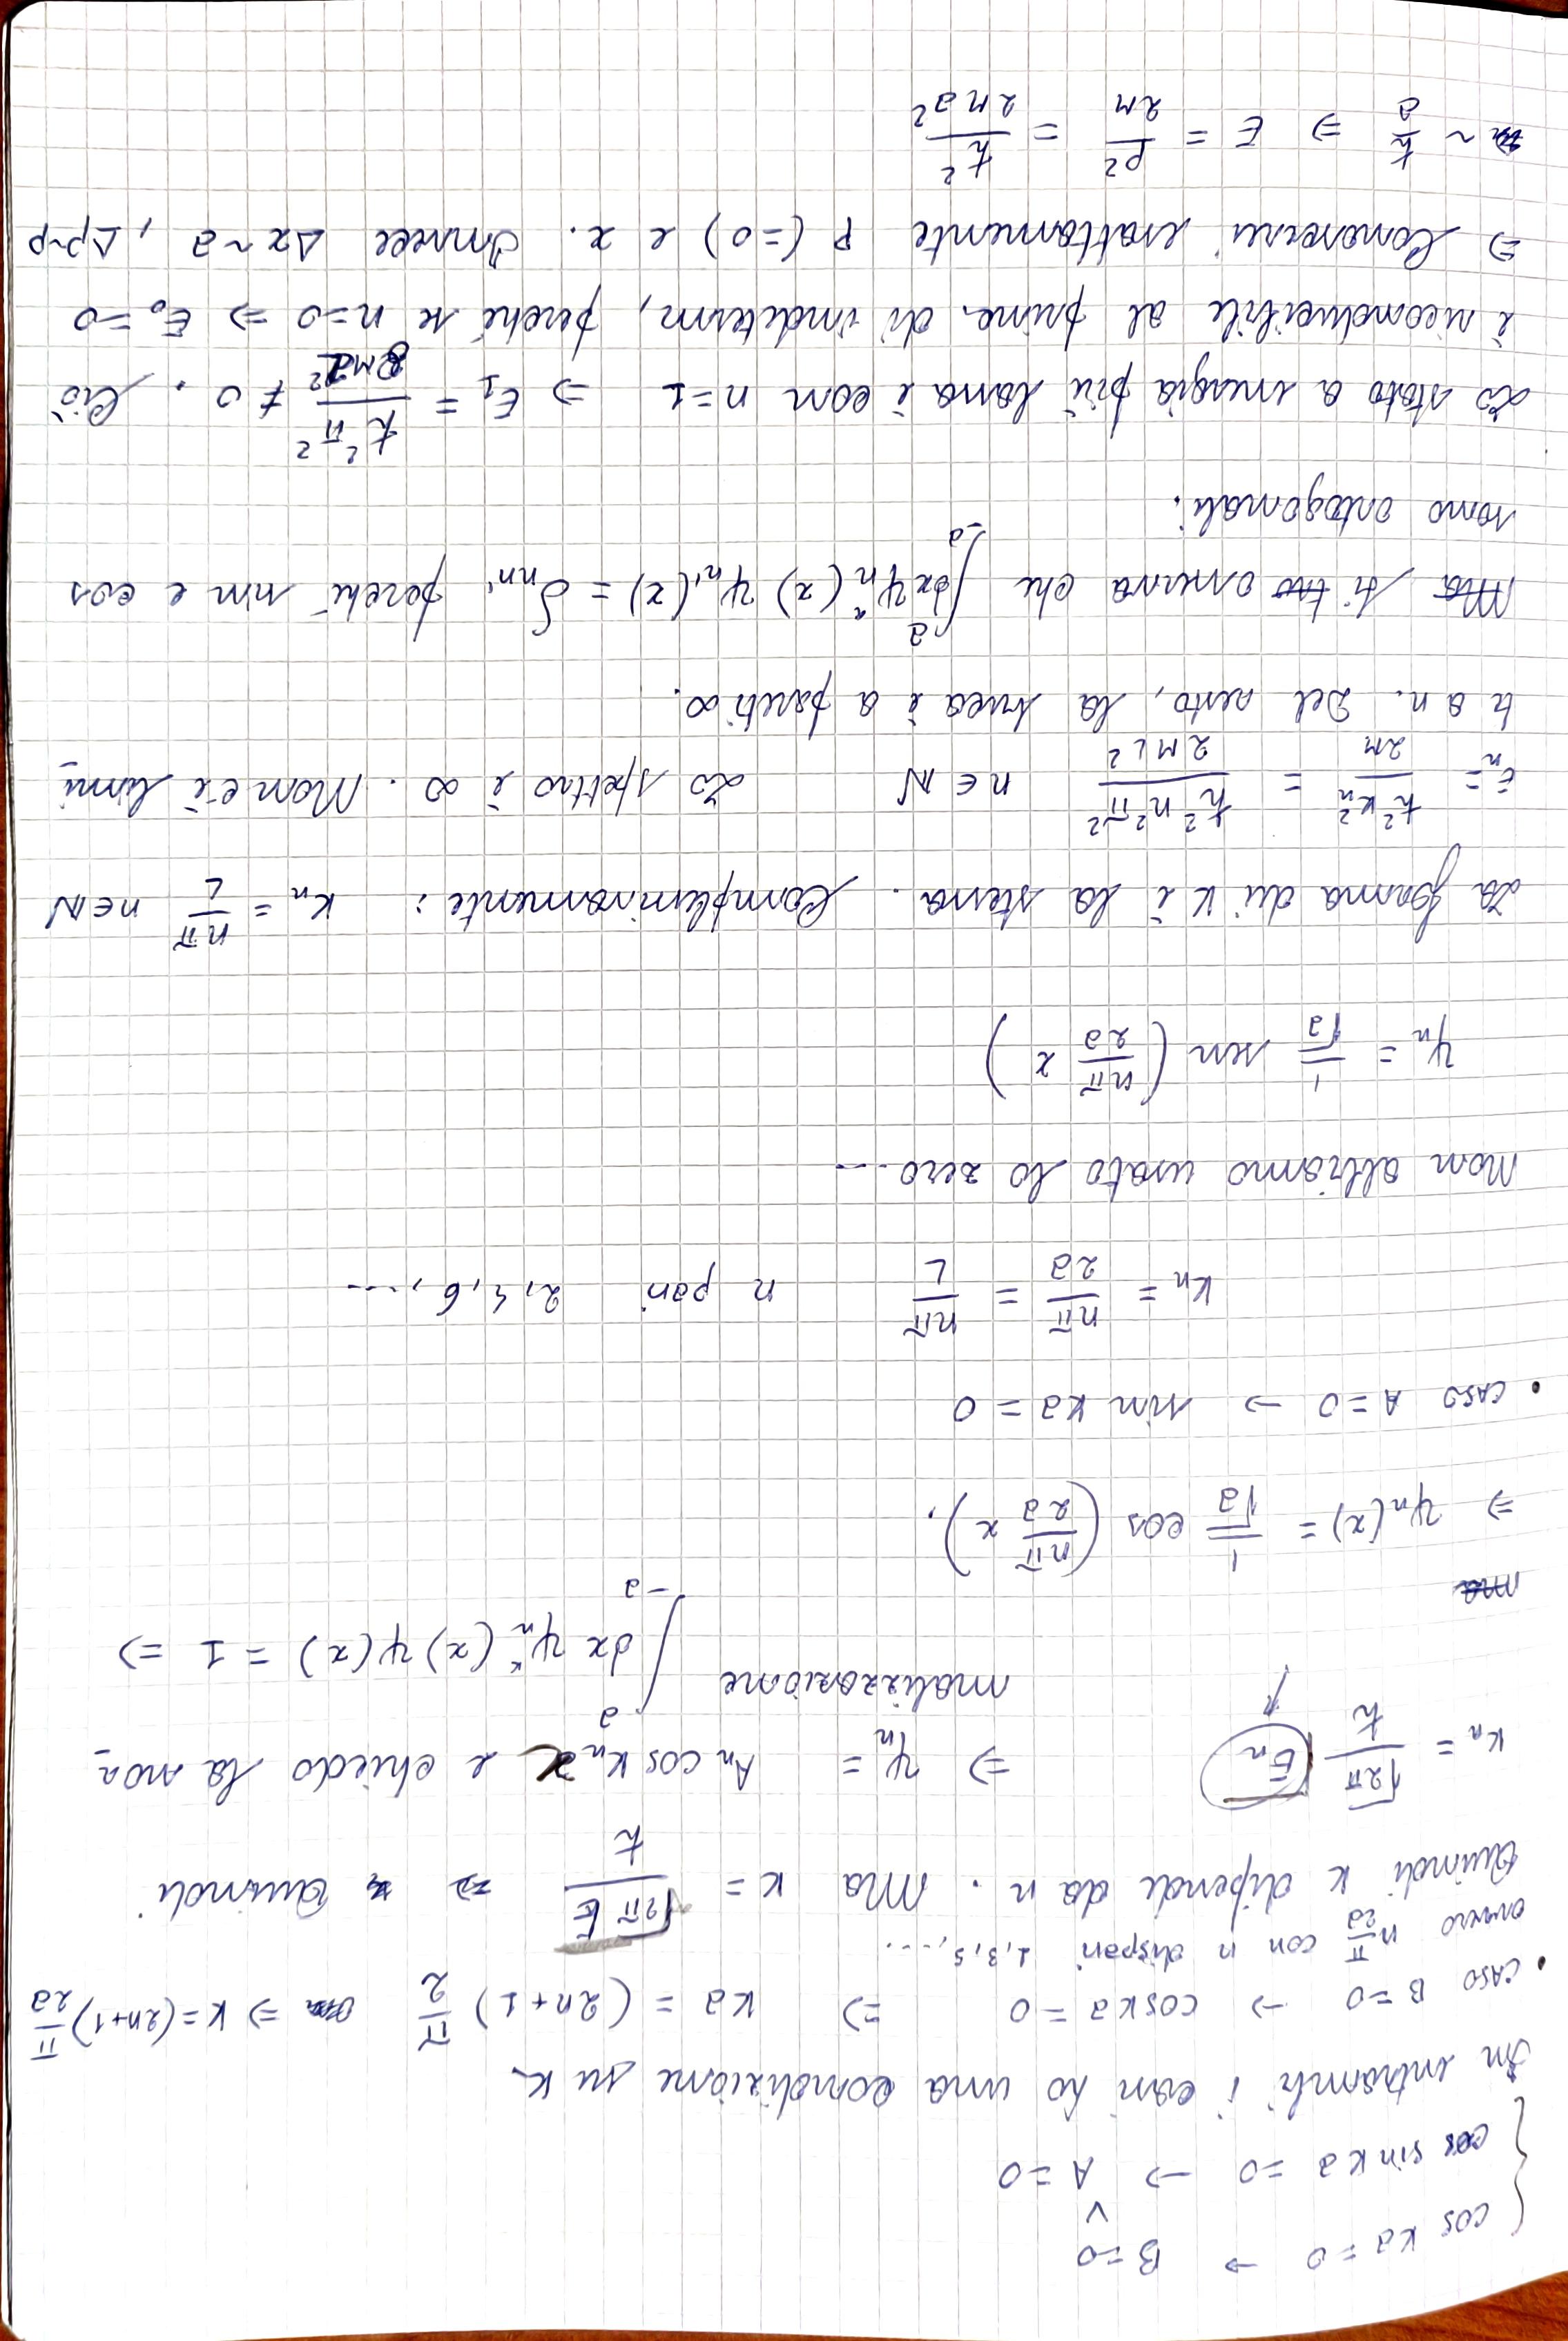 cos ka = 0 → B = 0
∨
sin ka = 0 → A = 0
In entrambi i casi ho una condizione su k
• CASO B = 0 → cos ka = 0 ⇒ ka = (2n+1) π/2 ⇒ k = (2n+1) π/2a
ovvero n π/2a con n dispari 1, 3, 5, ....
Quindi k dipende da n. Ma k = √(2π E)/ħ → Quindi
k_n = √(2π E_n)/ħ ⇒ ψ_n = A_n cos k_n x e chiedo la nor
malizzazione ∫_{-a}^{a} dx ψ_n^*(x) ψ(x) = 1 ⇒
⇒ ψ_n(x) = 1/√a cos (nπ/2a x).
• CASO A = 0 → sin ka = 0
k_n = nπ/2a = nπ/L n pari 2, 4, 6, ....
Non abbiamo usato lo zero ....
ψ_n = 1/√a sen (nπ/2a x)
La forma di k è la stessa. Complessivamente: k_n = nπ/L n ∈ N
E_n = ħ² k_n²/2m = ħ² n² π²/2mL² n ∈ N Lo spettro è ∞. Non c'è limi
ti a n. Del resto, la buca è a pareti ∞.
si osserva che ∫_{-a}^{a} dx ψ_n^*(x) ψ_n'(x) = δ_nn' perché sin e cos
sono ortogonali.
Lo stato a energia più bassa è con n = 1 ⇒ E_1 = ħ² π²/8ma² ≠ 0. Ciò
è riconducibile al princ. di indeterm, perché se n = 0 ⇒ E_0 = 0
⇒ Conoscerei esattamente p (= 0) e x. Invece Δx ~ a, Δp ~ p
~ ħ/a ⇒ E = p²/2m = ħ²/2ma²